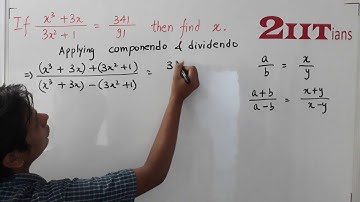 If x³ + 3x / 3x² + 1 = 341 / 91 then find x.
2IITians
Applying componendo & dividendo
⇒ (x³ + 3x) + (3x² + 1) / (x³ + 3x) − (3x² + 1) = 3
a / b = x / y
a + b / a − b = x + y / x − y